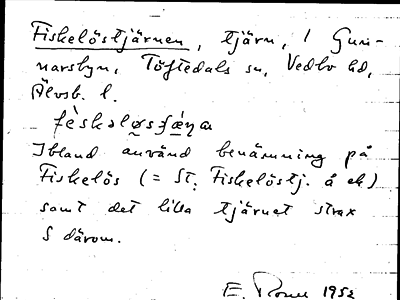 Fiskelöstjärnen, tjärn, i Gun-
narsbyn, Töftedals sn, Vedbo hd,
Älvsb. l.
fèskəløsfæ̀ŋa
Ibland använd benämning på
Fiskelös (= St. Fiskelöstj. å ek)
samt det lilla tjärnet strax
S därom.
E. 1952